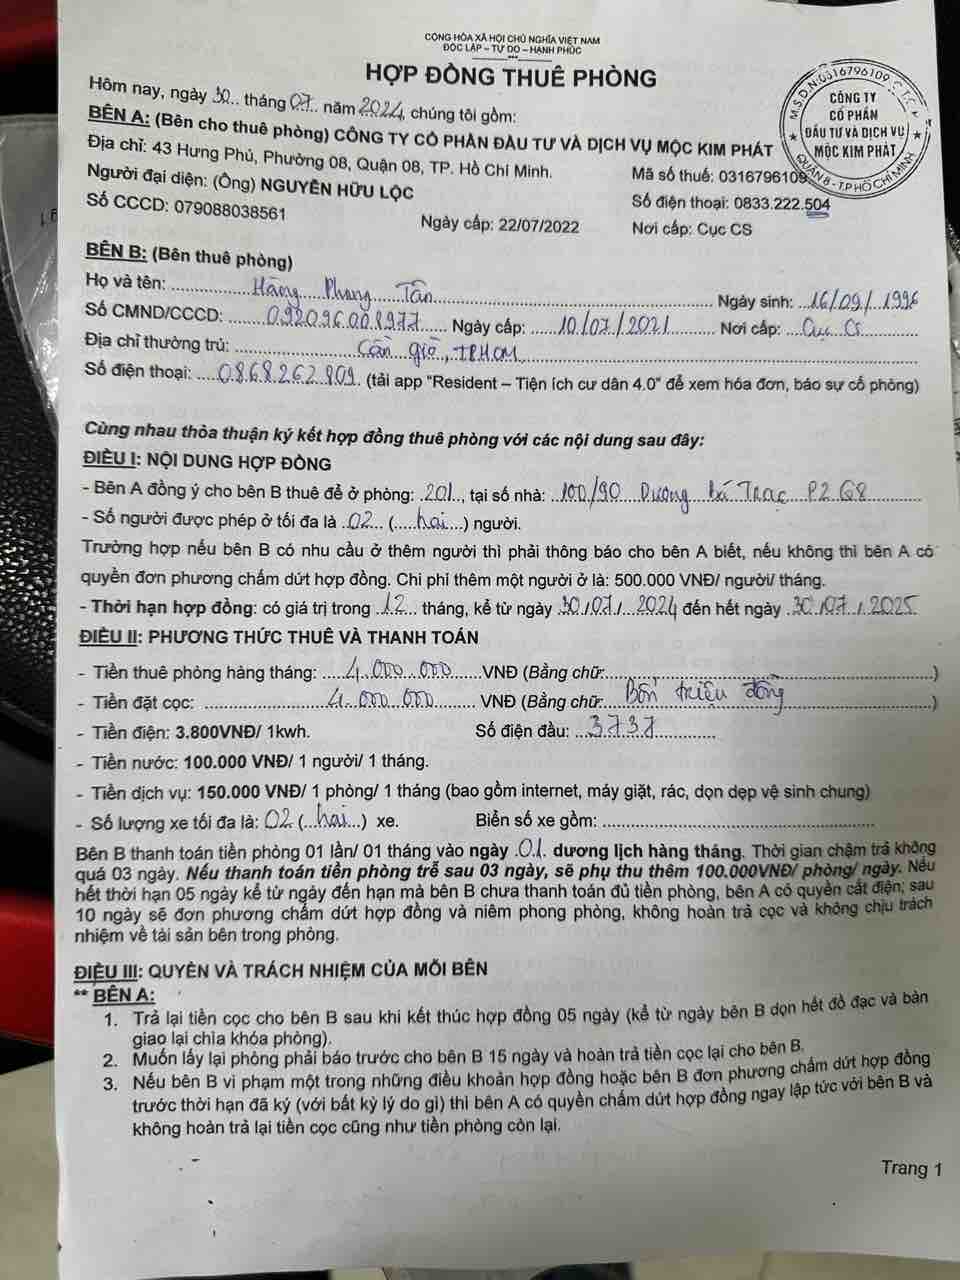 CỘNG HÒA XÃ HỘI CHỦ NGHĨA VIỆT NAM
ĐỘC LẬP – TỰ DO – HẠNH PHÚC
***
HỢP ĐỒNG THUÊ PHÒNG
Hôm nay, ngày 30 tháng 07 năm 2024, chúng tôi gồm:
BÊN A: (Bên cho thuê phòng) CÔNG TY CỔ PHẦN ĐẦU TƯ VÀ DỊCH VỤ MỘC KIM PHÁT
Địa chỉ: 43 Hưng Phú, Phường 08, Quận 08, TP. Hồ Chí Minh. Mã số thuế: 0316796109
Người đại diện: (Ông) NGUYỄN HỮU LỘC Số điện thoại: 0833.222.504
Số CCCD: 079088038561 Ngày cấp: 22/07/2022 Nơi cấp: Cục CS
M.S.D.N:0316796109
CÔNG TY
CỔ PHẦN
ĐẦU TƯ VÀ DỊCH VỤ
MỘC KIM PHÁT
QUẬN 8 - T.P HỒ CHÍ MINH
BÊN B: (Bên thuê phòng)
Họ và tên: Hàng Phang Tân Ngày sinh: 16/09/1996
Số CMND/CCCD: 092096008977 Ngày cấp: 10/07/2021 Nơi cấp: Cục CS
Địa chỉ thường trú: Cần giờ, TPHCM
Số điện thoại: 0868262809 (tải app "Resident – Tiện ích cư dân 4.0" để xem hóa đơn, báo sự cố phòng)
Cùng nhau thỏa thuận ký kết hợp đồng thuê phòng với các nội dung sau đây:
ĐIỀU I: NỘI DUNG HỢP ĐỒNG
- Bên A đồng ý cho bên B thuê để ở phòng: 201, tại số nhà: 100/90 Dương Bá Trạc P2 Q8
- Số người được phép ở tối đa là 02 (hai) người.
Trường hợp nếu bên B có nhu cầu ở thêm người thì phải thông báo cho bên A biết, nếu không thì bên A có
quyền đơn phương chấm dứt hợp đồng. Chi phí thêm một người ở là: 500.000 VNĐ/ người/ tháng.
- Thời hạn hợp đồng: có giá trị trong 12 tháng, kể từ ngày 30/07/2024 đến hết ngày 30/07/2025
ĐIỀU II: PHƯƠNG THỨC THUÊ VÀ THANH TOÁN
- Tiền thuê phòng hàng tháng: 4.000.000 VNĐ (Bằng chữ: )
- Tiền đặt cọc: 4.000.000 VNĐ (Bằng chữ: Bốn triệu đồng )
- Tiền điện: 3.800VNĐ/ 1kwh. Số điện đầu: 3737
- Tiền nước: 100.000 VNĐ/ 1 người/ 1 tháng.
- Tiền dịch vụ: 150.000 VNĐ/ 1 phòng/ 1 tháng (bao gồm internet, máy giặt, rác, dọn dẹp vệ sinh chung)
- Số lượng xe tối đa là: 02 (hai) xe. Biển số xe gồm:
Bên B thanh toán tiền phòng 01 lần/ 01 tháng vào ngày 01 dương lịch hàng tháng. Thời gian chậm trả không
quá 03 ngày. Nếu thanh toán tiền phòng trễ sau 03 ngày, sẽ phụ thu thêm 100.000VNĐ/ phòng/ ngày. Nếu
hết thời hạn 05 ngày kể từ ngày đến hạn mà bên B chưa thanh toán đủ tiền phòng, bên A có quyền cắt điện; sau
10 ngày sẽ đơn phương chấm dứt hợp đồng và niêm phong phòng, không hoàn trả cọc và không chịu trách
nhiệm về tài sản bên trong phòng.
ĐIỀU III: QUYỀN VÀ TRÁCH NHIỆM CỦA MỖI BÊN
** BÊN A:
1. Trả lại tiền cọc cho bên B sau khi kết thúc hợp đồng 05 ngày (kể từ ngày bên B dọn hết đồ đạc và bàn
giao lại chìa khóa phòng).
2. Muốn lấy lại phòng phải báo trước cho bên B 15 ngày và hoàn trả tiền cọc lại cho bên B.
3. Nếu bên B vi phạm một trong những điều khoản hợp đồng hoặc bên B đơn phương chấm dứt hợp đồng
trước thời hạn đã ký (với bất kỳ lý do gì) thì bên A có quyền chấm dứt hợp đồng ngay lập tức với bên B và
không hoàn trả lại tiền cọc cũng như tiền phòng còn lại.
Trang 1